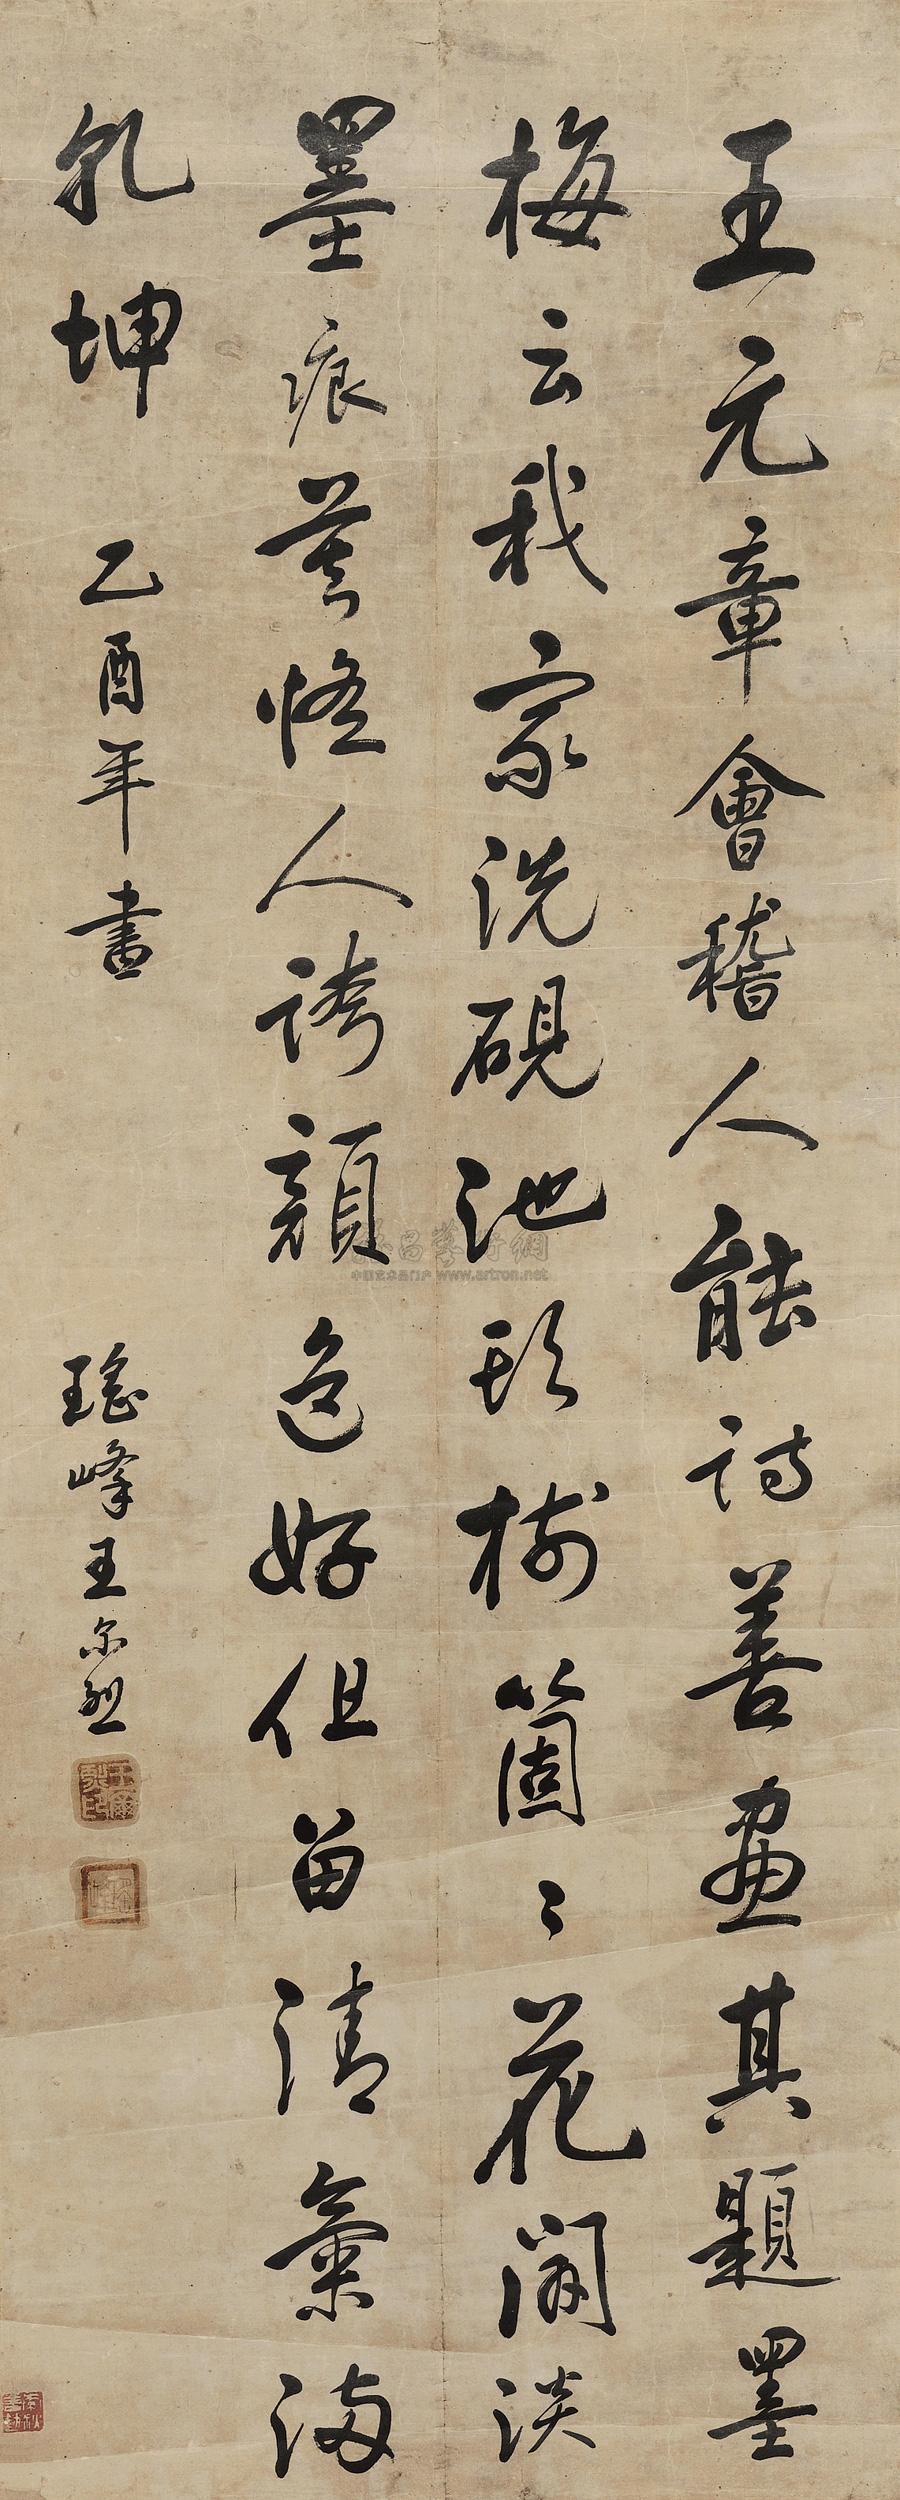 王元章會稽人能詩善畫其題墨
梅云我家洗硯池頭樹箇〻花開淡
墨痕莫恠人誇顔色好但留清氣滿
乹坤
乙酉年書
瑤峰王尔烈
王爾烈印
www.artron.net